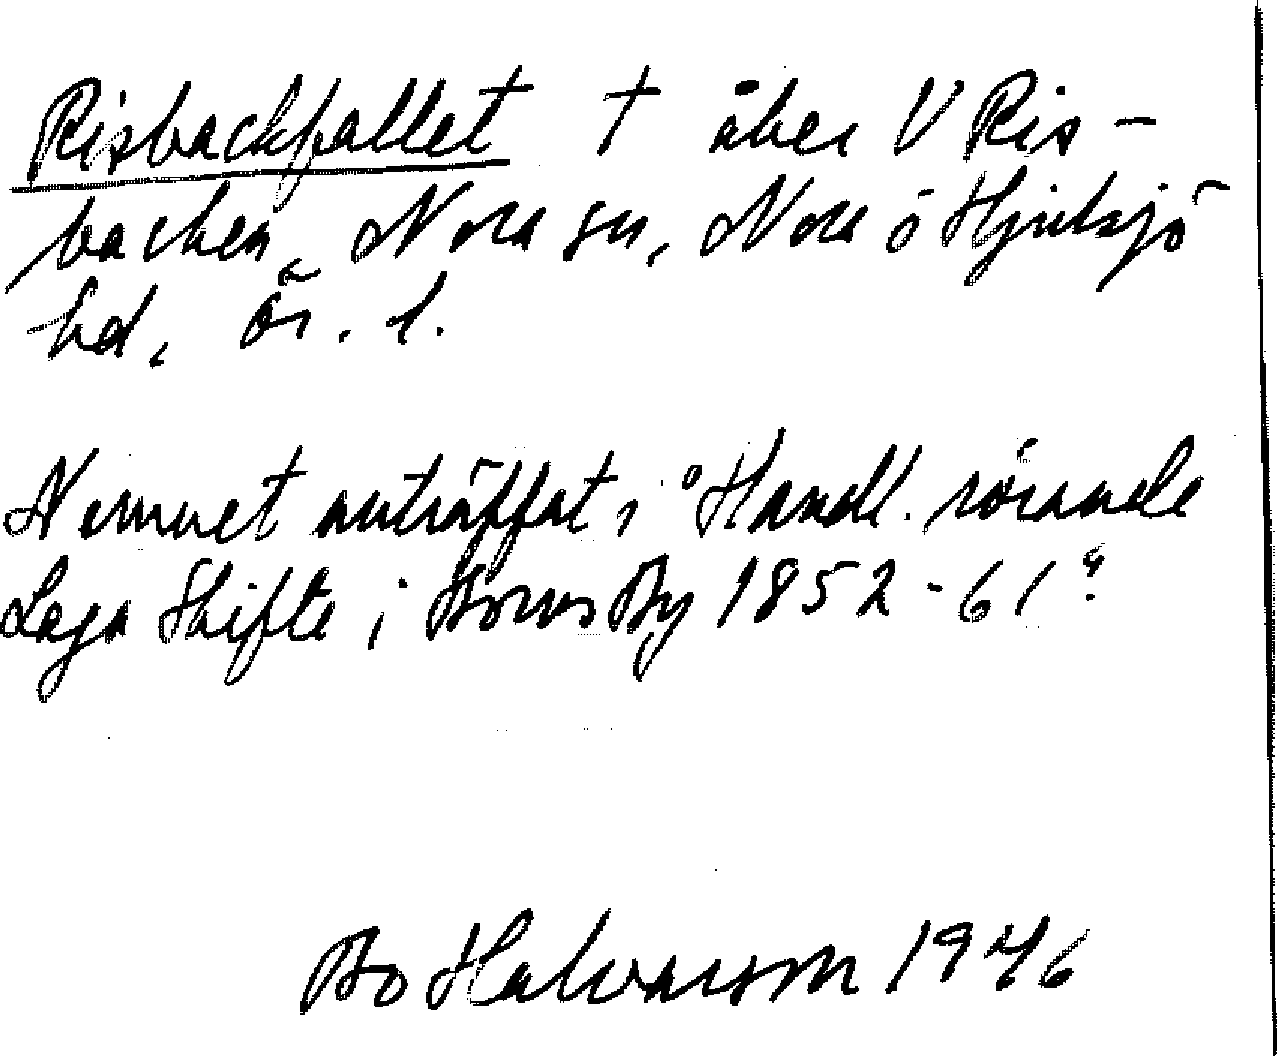 Risbackfallet † åker V Ris-
backen, Nora sn, Nora o Hjulsjö
hd, Ör. l.
Namnet anträffat i "Handl. rörande
Laga Skifte i By 1852-61"
Bo Halvarson 1946